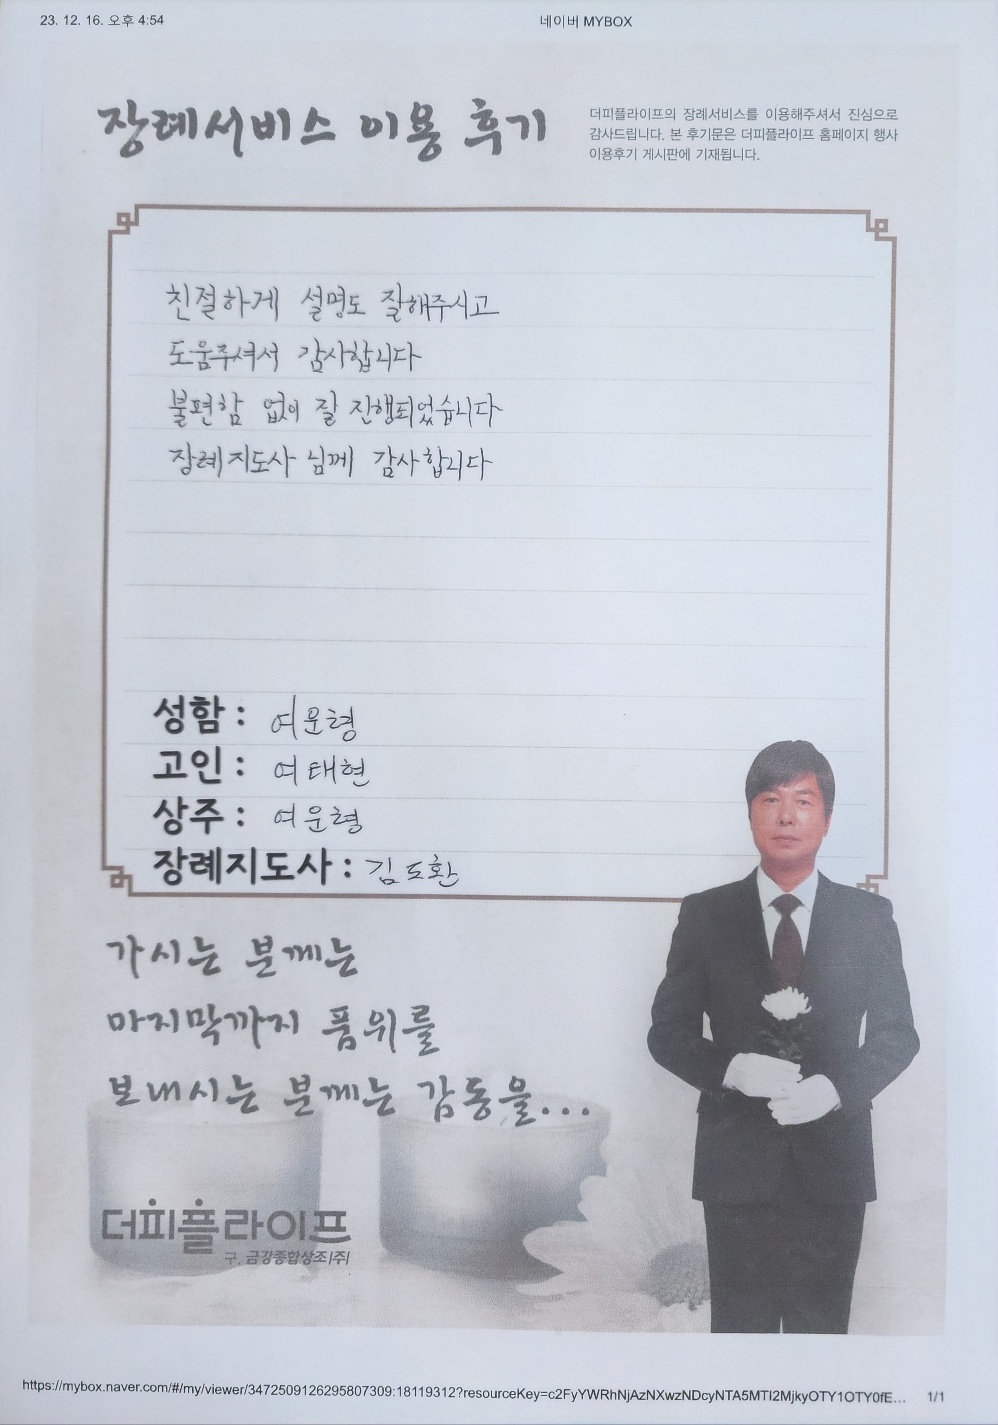 23. 12. 16. 오후 4:54
네이버 MYBOX
장례서비스 이용 후기
더피플라이프의 장례서비스를 이용해주셔서 진심으로
감사드립니다. 본 후기문은 더피플라이프 홈페이지 행사
이용후기 게시판에 기재됩니다.
친절하게 설명도 잘해주시고
도움주셔서 감사합니다
불편함 없이 잘 진행되었습니다
장례지도사 님께 감사합니다
성함 : 여운형
고인 : 여태현
상주 : 여운형
장례지도사 : 김도환
가시는 분께는
마지막까지 품위를
보내시는 분께는 감동을...
더피플라이프
구. 금강종합상조(주)
https://mybox.naver.com/#/my/viewer/3472509126295807309:18119312?resourceKey=c2FyYWRhNjAzNXwzNDcyNTA5MTI2MjkyOTY1OTY0fE... 1/1